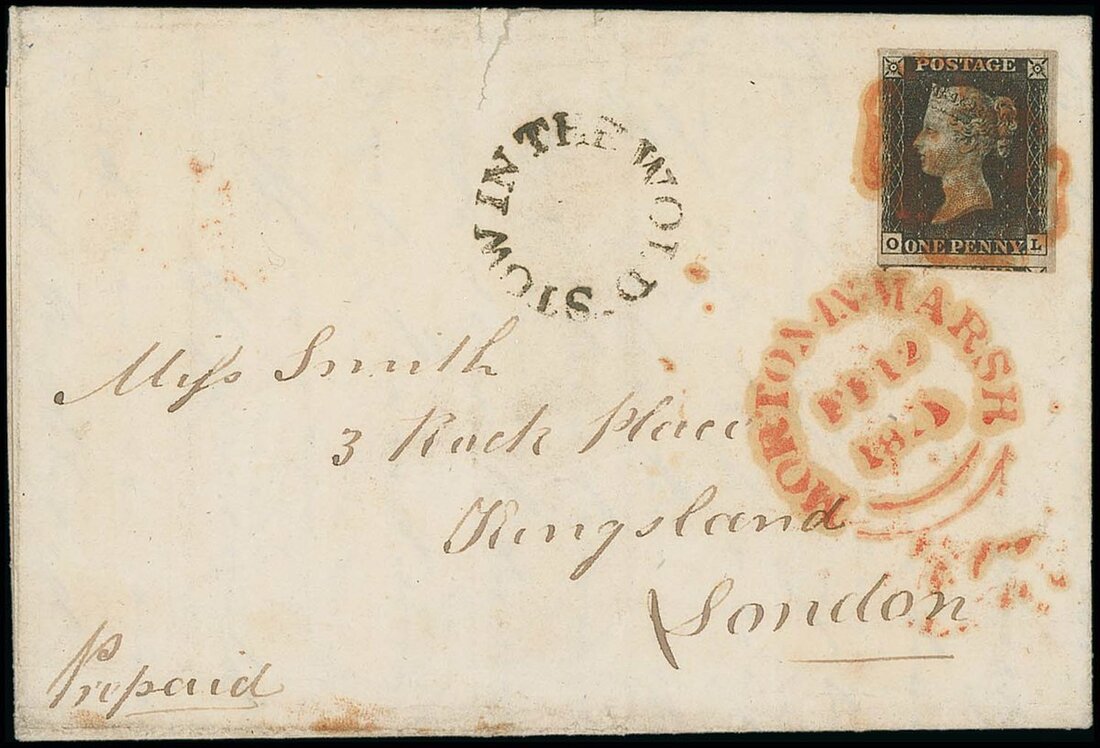 POSTAGE
O ONE PENNY. L
STOW IN THE WOLD
MORTON IN MARSH
FE 12
Miss Smith
3 Rock Place
Kingsland
London
Prepaid